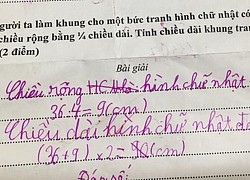 người ta làm khung cho một bức tranh hình chữ nhật có
chiều rộng bằng ¼ chiều dài. Tính chiều dài khung tran
(2 điểm)
Bài giải
Chiều rộng hình chữ nhật
36:4=9(cm)
Chiều dài hình chữ nhật đó
(36+9)x2=90(cm)
Đáp số: